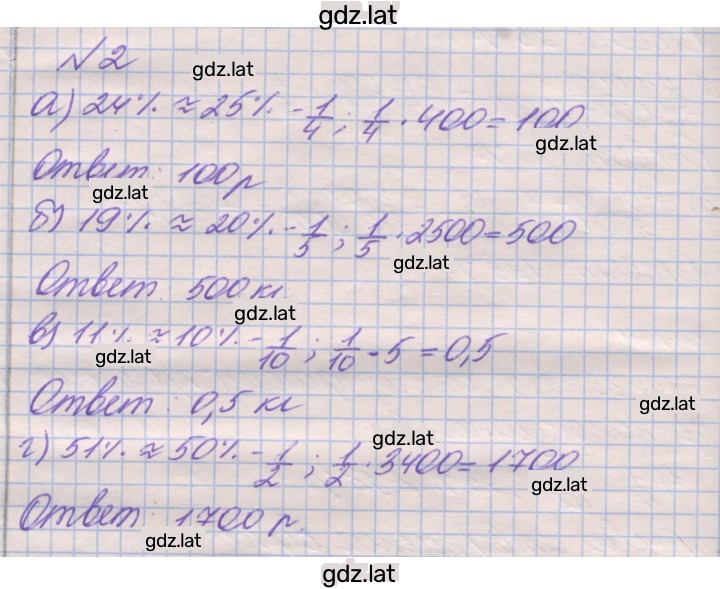 gdz.lat
№2
gdz.lat
а) 24% ≈ 25% - 1/4; 1/4 · 400 = 100
gdz.lat
Ответ: 100 р
gdz.lat
б) 19% ≈ 20% - 1/5; 1/5 · 2500 = 500
gdz.lat
Ответ: 500 кг
gdz.lat
в) 11% ≈ 10% - 1/10; 1/10 · 5 = 0,5
gdz.lat
Ответ: 0,5 кг
gdz.lat
г) 51% ≈ 50% - 1/2; 1/2 · 3400 = 1700
gdz.lat
gdz.lat
Ответ: 1700 р.
gdz.lat
gdz.lat